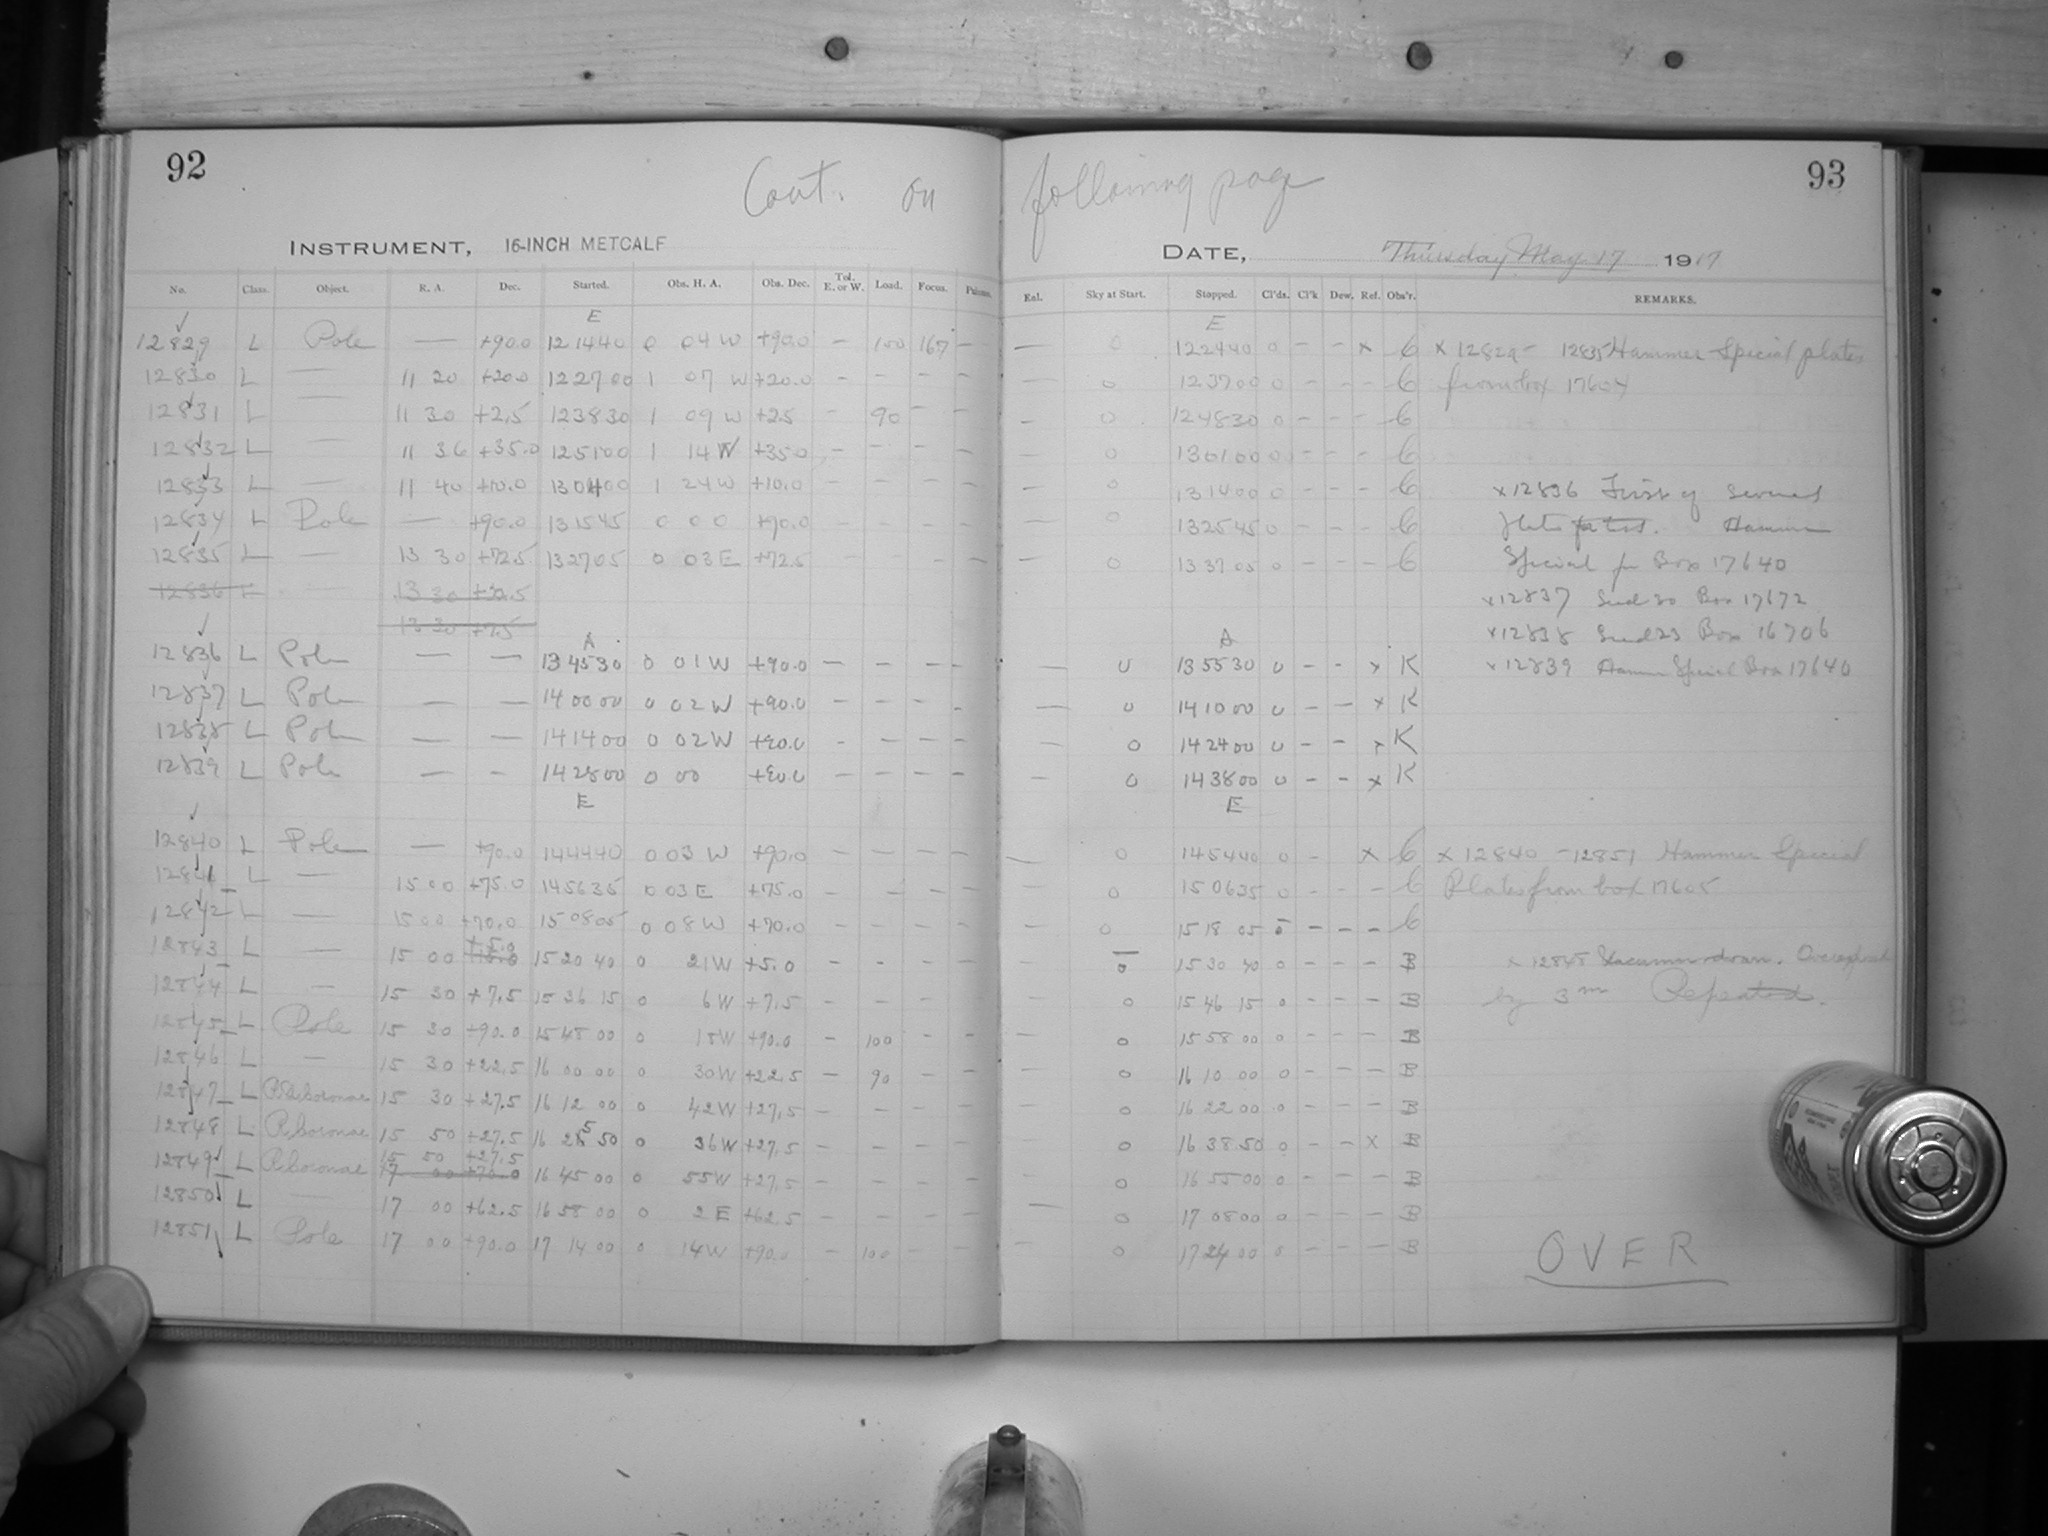 92
93
Cont. on following page
INSTRUMENT, 16-INCH METCALF
DATE, Thursday May 17 1917
No. Class. Object. R. A. Dec. Started. Obs. H. A. Obs. Dec. Tel. E. or W. Load. Focus. Rel. Sky at Start. Stopped. Cl'ds. Cl'k Dew. Ref. Obs'r. REMARKS.
E E
12829 L Pole — +90.0 12 14 40 0 04 W +90.0 - 100 167 — — 0 12 24 40 0 - - x C x 12829 - 12835 Hammer Special plates
12830 L — 11 20 +20.0 12 27 00 1 07 W +20.0 - - - - — 0 12 37 00 0 - - - C from box 17604
12831 L — 11 30 +2.5 12 38 30 1 09 W +2.5 - 90 - - — 0 12 48 30 0 - - - C
12832 L — 11 36 +35.0 12 51 00 1 14 W +35.0 - - - - — 0 13 01 00 0 - - - C
12833 L — 11 40 +10.0 13 04 00 1 24 W +10.0 - - - - — 0 13 14 00 0 - - - C x 12836 First of several
12834 L Pole — +90.0 13 15 45 0 0 0 +90.0 - - - - — 0 13 25 45 0 - - - C plates Hammer
12835 L — 13 30 +72.5 13 27 05 0 03 E +72.5 - - - — 0 13 37 05 0 - - - C Special fr Box 17640
12836 L — 13 30 +22.5
x 12837 Seed 30 Box 17672
13 30 +7.5
x 12838 Seed 23 Box 16706
A A
12836 L Pole — — 13 45 30 0 01 W +90.0 - - - - — 0 13 55 30 0 - - x K x 12839 Hammer Special Box 17640
12837 L Pole — — 14 00 00 0 02 W +90.0 - - - - — 0 14 10 00 0 - - x K
12838 L Pole — — 14 14 00 0 02 W +90.0 - - - - — 0 14 24 00 0 - - x K
12839 L Pole — — 14 28 00 0 00 +90.0 - - - - — 0 14 38 00 0 - - x K
E E
12840 L Pole — +90.0 14 44 40 0 03 W +90.0 - - - - — 0 14 54 40 0 - x C x 12840 - 12851 Hammer Special
12841 L — 15 00 +75.0 14 56 35 0 03 E +75.0 - - - - — 0 15 06 35 0 - - - C Plates from box 17605
12842 L — 15 00 +70.0 15 08 05 0 08 W +70.0 - - - - — 0 15 18 05 0 - - - C
+5.0
12843 L — 15 00 15 20 40 0 21 W +5.0 - - - - — 0 15 30 40 0 - - - B x 12848 Vacuum down. Overexposed
12844 L — 15 30 +7.5 15 36 15 0 6 W +7.5 - - - - 0 15 46 15 0 - - - B by 3m Repeated.
12845 L Pole 15 30 +90.0 15 48 00 0 18 W +90.0 - 100 - - — 0 15 58 00 0 - - - B
12846 L — 15 30 +22.5 16 00 00 0 30 W +22.5 - 90 - - — 0 16 10 00 0 - - - B
12847 L 15 30 +27.5 16 12 00 0 42 W +27.5 - - - - — 0 16 22 00 0 - - - B
12848 L R. Coronae 15 50 +27.5 16 28 50 0 36 W +27.5 - - - - — 0 16 38 50 0 - - x B
15 50 +27.5
12849 L R. Coronae 17 00 16 45 00 0 55 W +27.5 - - - - — 0 16 55 00 0 - - - B
12850 L — 17 00 +62.5 16 58 00 0 2 E +62.5 - - - - — 0 17 08 00 0 - - - B
12851 L Pole 17 00 +90.0 17 14 00 0 14 W +90.0 - 100 - - — 0 17 24 00 0 - - - B
OVER